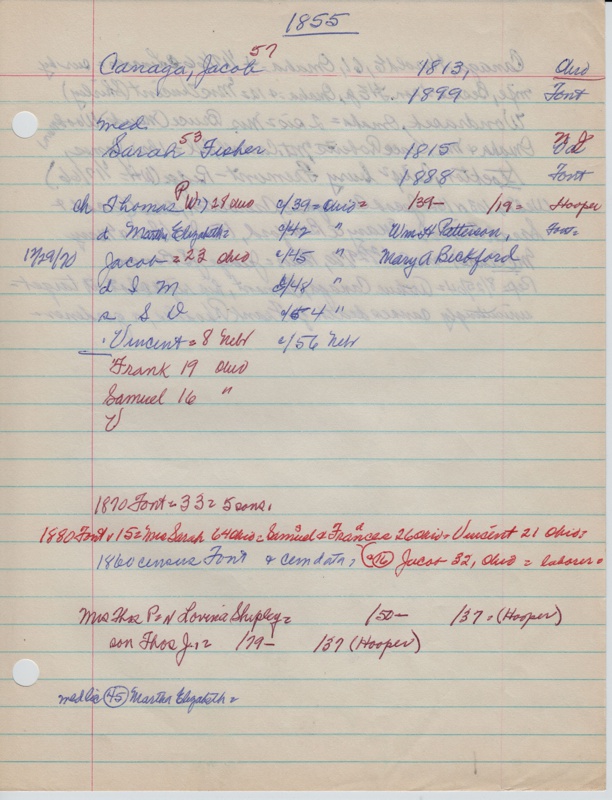 1855
Canaga, Jacob 57 1813, Ohio
1899 Font
med
Sarah 53 Fisher 1815
1888 Font
ch Thomas P W 28 Ohio c/39 = Ohio = /39- /19 = Hooper
d Martha Elizabeth = c/42 " Wm H Patterson, Font =
12/29/70 Jacob = 23 Ohio c/45 " Mary A Beckford
d S M c/48 "
s S D c/54 "
Vincent = 8 Nebr c/56 Nebr
Frank 19 Ohio
Samuel 16 "
V
1870 Font = 33 = 5 sons,
1880 Font v 15 = Mrs Sarah 64 Ohio = Samuel & Frances 26 Ohio = Vincent 21 Ohio =
1860 census Font & cem data; 16 Jacob 32, Ohio = laborer =
Mrs Thos P = N Lovina Shipley = /50- /37 = (Hooper)
son Thos J., = /79- /37 (Hooper)
med lic 45 Martha Elizabeth =